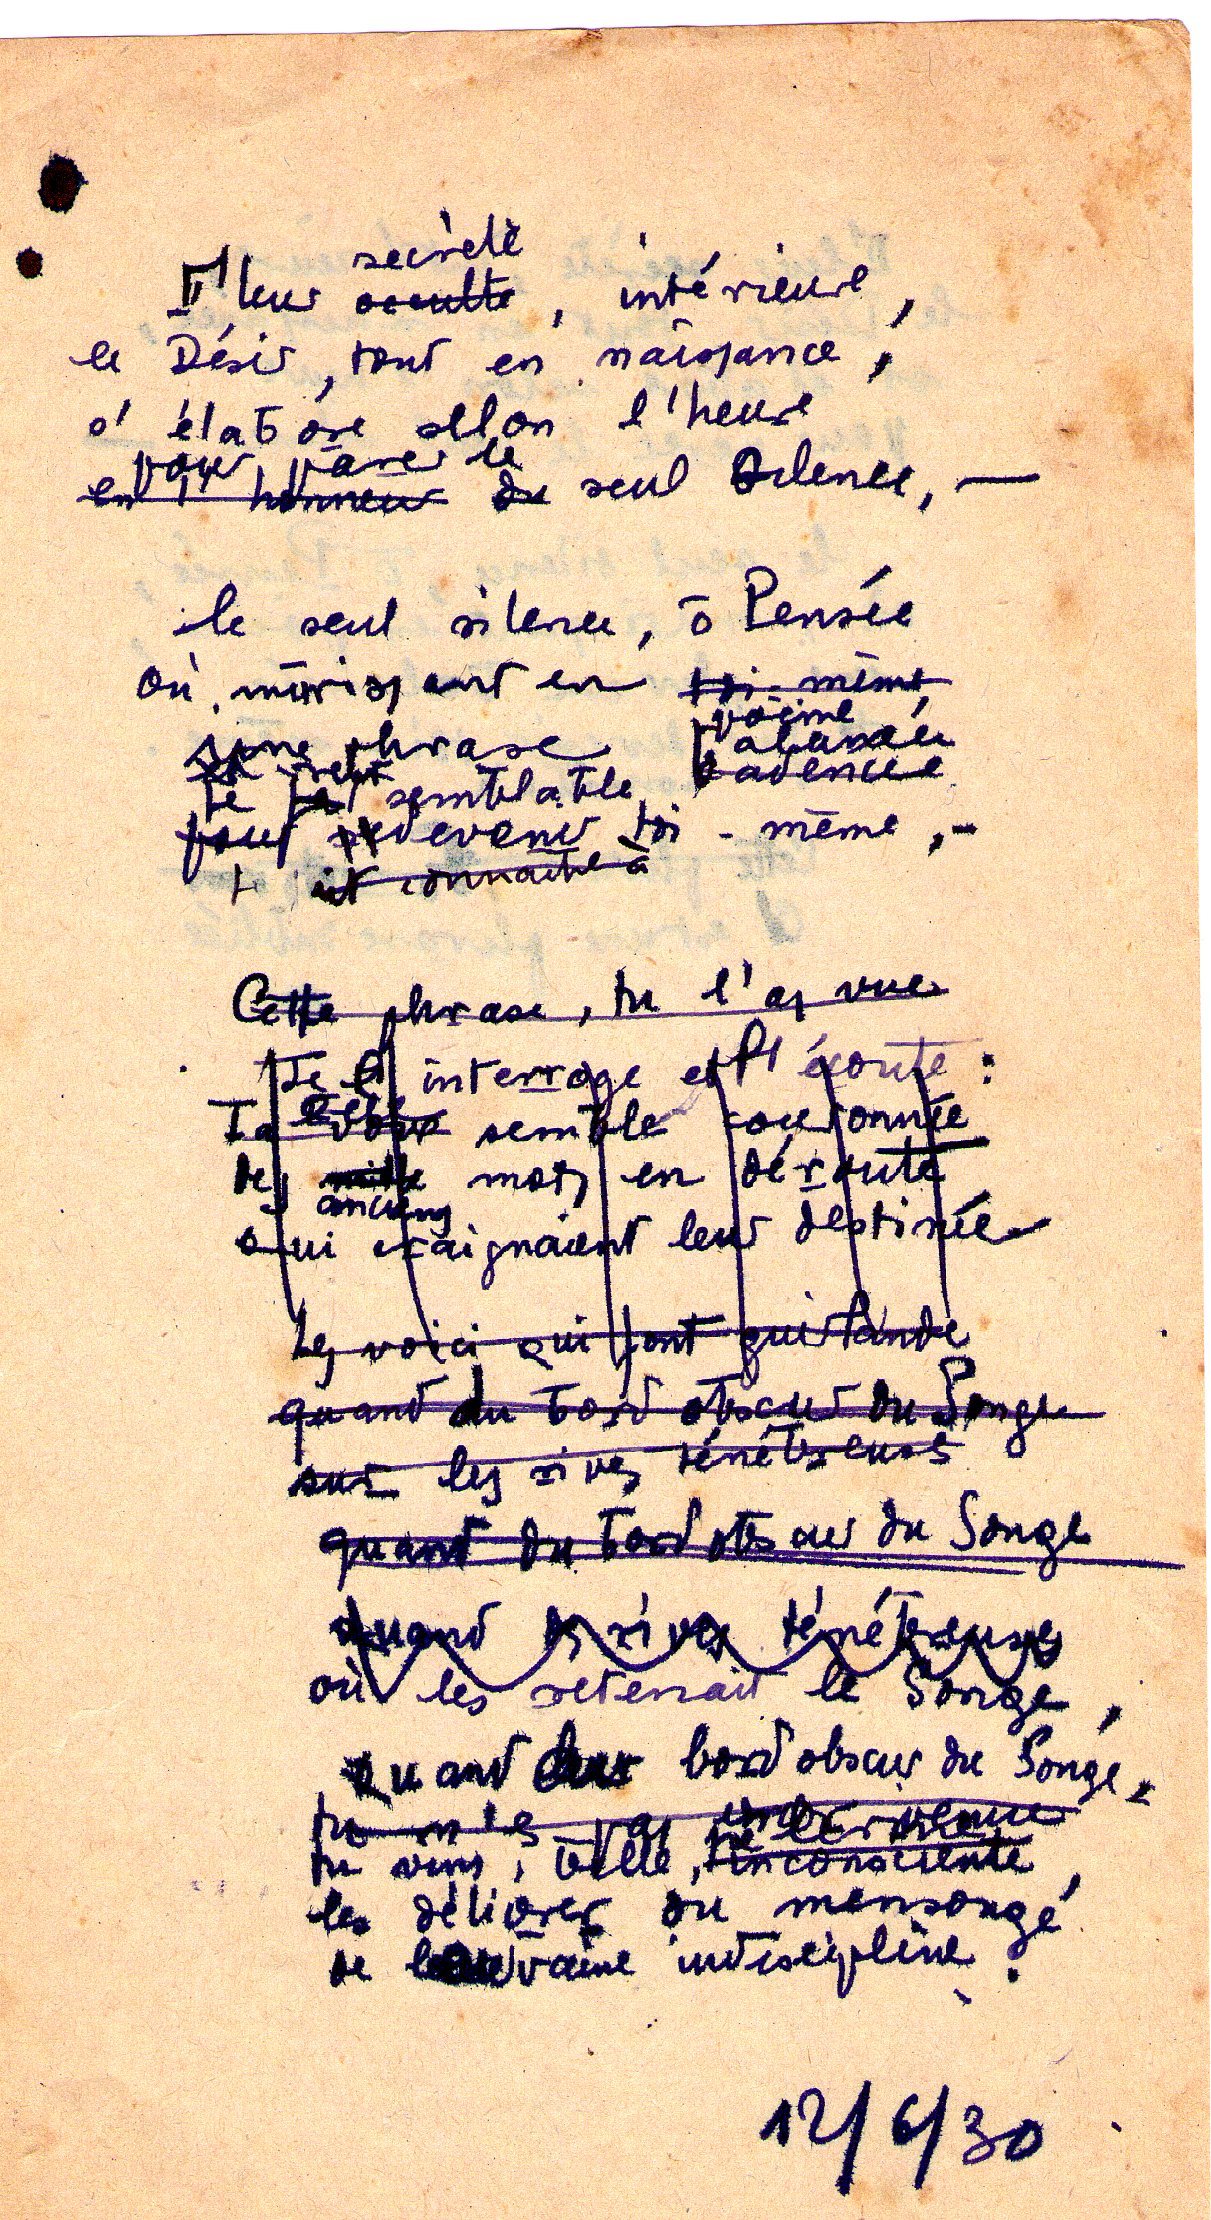 secrète
Fleur occulte, intérieure,
le Désir, tout en naissance,
s'élabore selon l'heure
pour parer le
en l'honneur du seul silence, —
le seul silence, ô Pensée
où mûrissant en toi-même
une phrase
cadencée
semblable
pour devenir toi-même, -
connaître à
Cette phrase, tu l'as vue
Je l'interroge et l'écoute :
Ta voix semble couronnée
des mille mots en déroute
anciens
qui craignaient leur destinée
Les voici qui font guirlande
quand du bord obscur du Songe
sur les rives ténébreuses
quand du bord obscur du Songe
Quand des rives ténébreuses
où les retenait le Songe,
Quand bord obscur du Songe,
tu n'es pas venue
tu vins, belle, inconsciente,
les délivrer du mensonge
de vaine indiscipline.
12/6/30